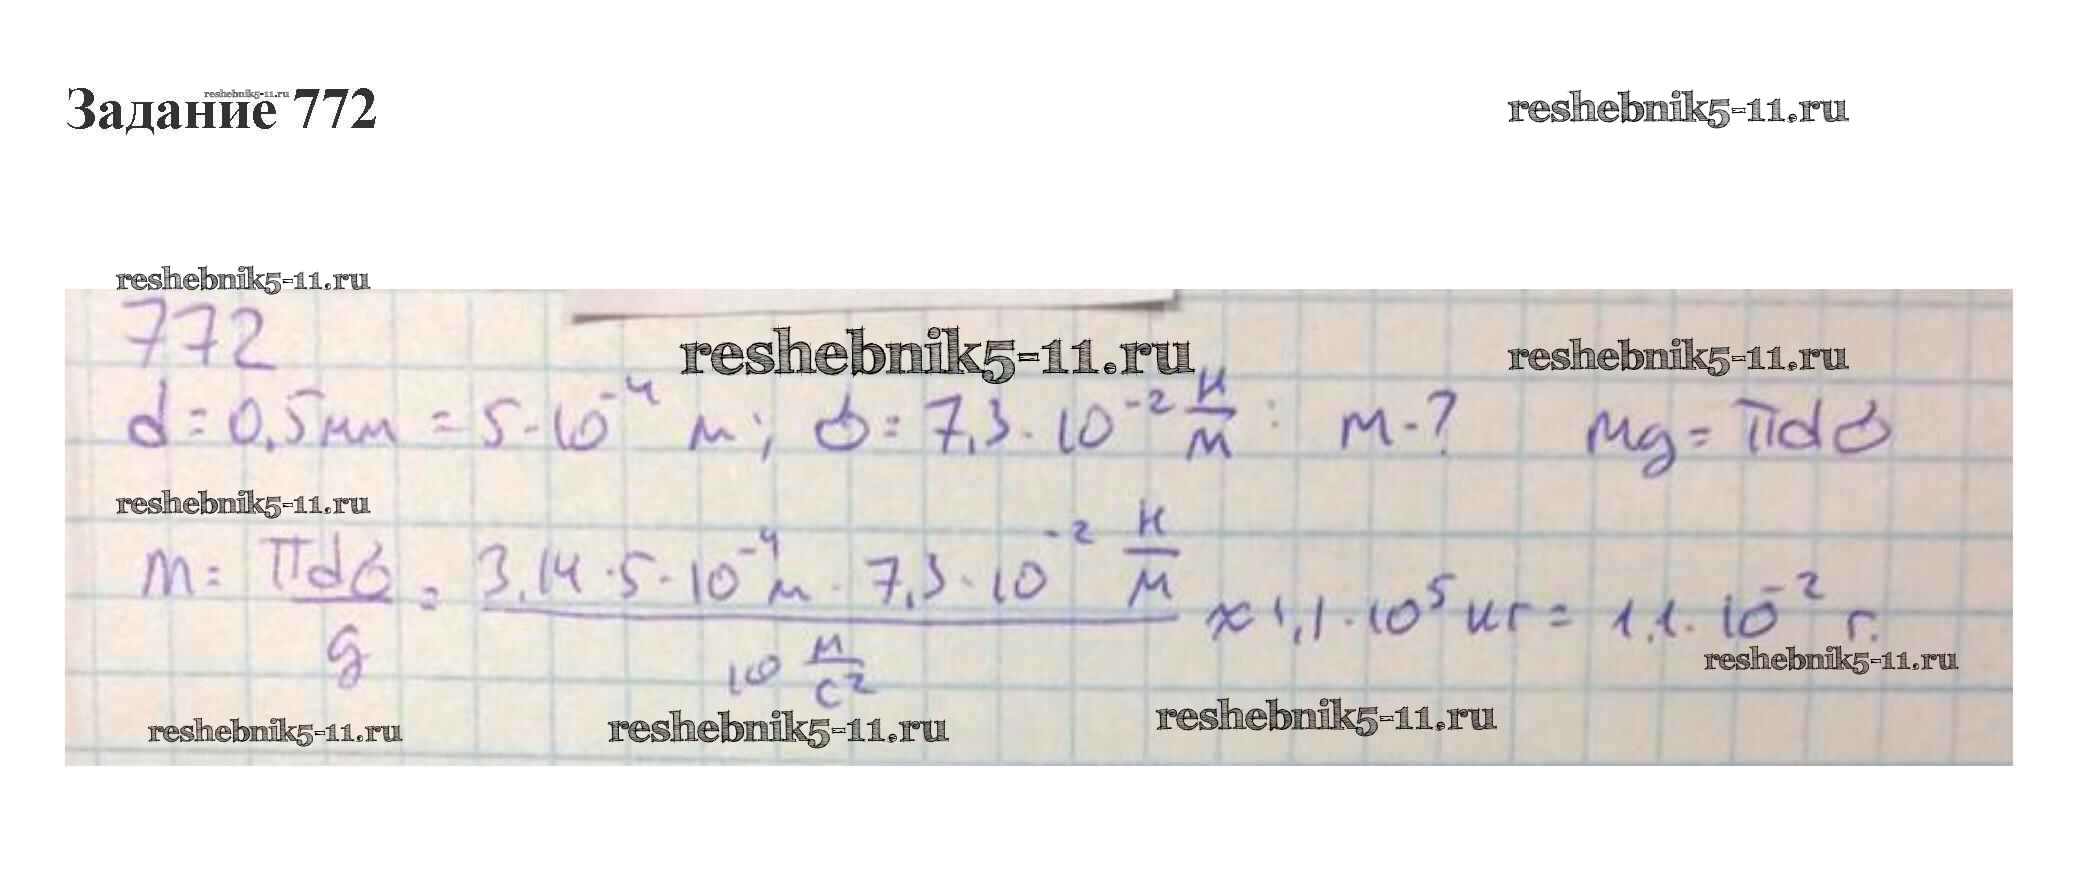 Задание 772
reshebnik5-11.ru
reshebnik5-11.ru
reshebnik5-11.ru
772
reshebnik5-11.ru
reshebnik5-11.ru
d = 0,5 мм = 5·10⁻⁴ м; σ = 7,3·10⁻² Н/м : m-? mg = πdσ
reshebnik5-11.ru
m = πdσ/g = 3,14·5·10⁻⁴ м·7,3·10⁻² Н/м / 10 м/с² ≈ 1,1·10⁵ кг = 1,1·10⁻² г.
reshebnik5-11.ru
reshebnik5-11.ru
reshebnik5-11.ru
reshebnik5-11.ru